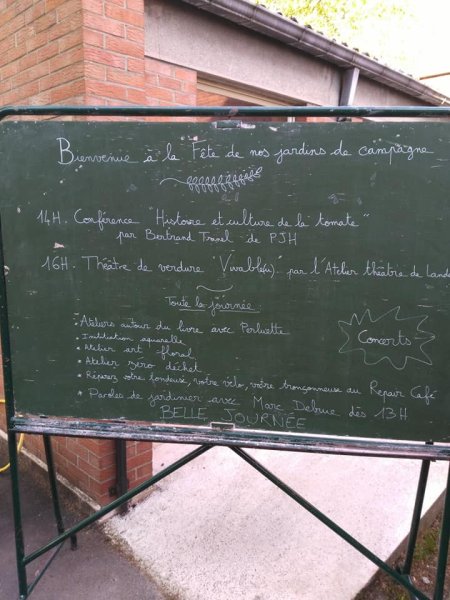 Bienvenue à la Fête de nos jardins de campagne
14H. Conférence "Histoire et culture de la tomate"
par Bertrand Travel de PJH
16H. Théâtre de verdure "Vivable(s)" par l'Atelier théâtre de Land
Toute la journée :
• Ateliers autour du livre avec Perluette
• Initiation aquarelle
• Atelier art floral
• Atelier zéro déchet
• Réparez votre tondeuse, votre vélo, votre tronçonneuse au Repair Café
• Paroles de jardinier avec Marc Debrue dès 13H
Concerts
BELLE JOURNÉE